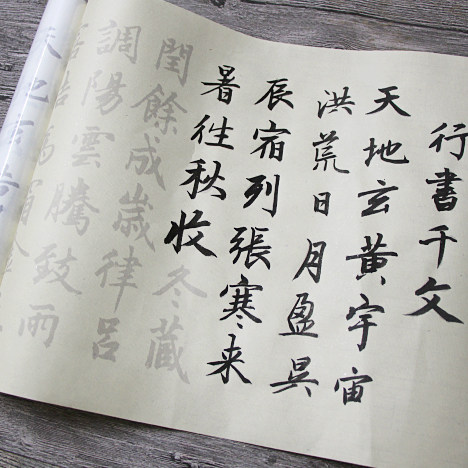 行書千文
天地玄黄宇宙
洪荒日月盈昃
辰宿列張寒来
暑往秋收冬藏
閏餘成歳律呂
調陽雲騰致雨